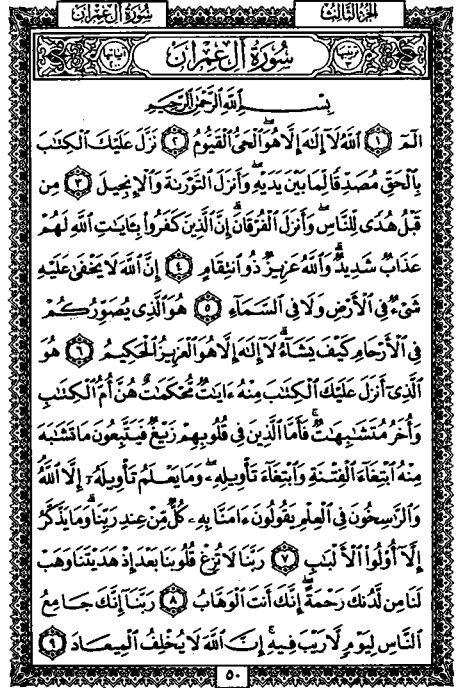 سُورَةُ آلِ عِمْرَان الجزء الثالث
سُورَةُ آلِ عِمْرَان
بِسْمِ اللَّهِ الرَّحْمَٰنِ الرَّحِيمِ
الٓمٓ ١ ٱللَّهُ لَآ إِلَٰهَ إِلَّا هُوَ ٱلْحَىُّ ٱلْقَيُّومُ ٢ نَزَّلَ عَلَيْكَ ٱلْكِتَٰبَ
بِٱلْحَقِّ مُصَدِّقًا لِّمَا بَيْنَ يَدَيْهِ وَأَنزَلَ ٱلتَّوْرَىٰةَ وَٱلْإِنجِيلَ ٣ مِن
قَبْلُ هُدًى لِّلنَّاسِ وَأَنزَلَ ٱلْفُرْقَانَ إِنَّ ٱلَّذِينَ كَفَرُوا۟ بِـَٔايَٰتِ ٱللَّهِ لَهُمْ
عَذَابٌ شَدِيدٌ وَٱللَّهُ عَزِيزٌ ذُو ٱنتِقَامٍ ٤ إِنَّ ٱللَّهَ لَا يَخْفَىٰ عَلَيْهِ
شَىْءٌ فِى ٱلْأَرْضِ وَلَا فِى ٱلسَّمَآءِ ٥ هُوَ ٱلَّذِى يُصَوِّرُكُمْ
فِى ٱلْأَرْحَامِ كَيْفَ يَشَآءُ لَآ إِلَٰهَ إِلَّا هُوَ ٱلْعَزِيزُ ٱلْحَكِيمُ ٦ هُوَ
ٱلَّذِىٓ أَنزَلَ عَلَيْكَ ٱلْكِتَٰبَ مِنْهُ ءَايَٰتٌ مُّحْكَمَٰتٌ هُنَّ أُمُّ ٱلْكِتَٰبِ
وَأُخَرُ مُتَشَٰبِهَٰتٌ فَأَمَّا ٱلَّذِينَ فِى قُلُوبِهِمْ زَيْغٌ فَيَتَّبِعُونَ مَا تَشَٰبَهَ
مِنْهُ ٱبْتِغَآءَ ٱلْفِتْنَةِ وَٱبْتِغَآءَ تَأْوِيلِهِۦ وَمَا يَعْلَمُ تَأْوِيلَهُۥٓ إِلَّا ٱللَّهُ
وَٱلرَّٰسِخُونَ فِى ٱلْعِلْمِ يَقُولُونَ ءَامَنَّا بِهِۦ كُلٌّ مِّنْ عِندِ رَبِّنَا وَمَا يَذَّكَّرُ
إِلَّآ أُو۟لُوا۟ ٱلْأَلْبَٰبِ ٧ رَبَّنَا لَا تُزِغْ قُلُوبَنَا بَعْدَ إِذْ هَدَيْتَنَا وَهَبْ
لَنَا مِن لَّدُنكَ رَحْمَةً إِنَّكَ أَنتَ ٱلْوَهَّابُ ٨ رَبَّنَآ إِنَّكَ جَامِعُ
ٱلنَّاسِ لِيَوْمٍ لَّا رَيْبَ فِيهِ إِنَّ ٱللَّهَ لَا يُخْلِفُ ٱلْمِيعَادَ ٩
٥٠